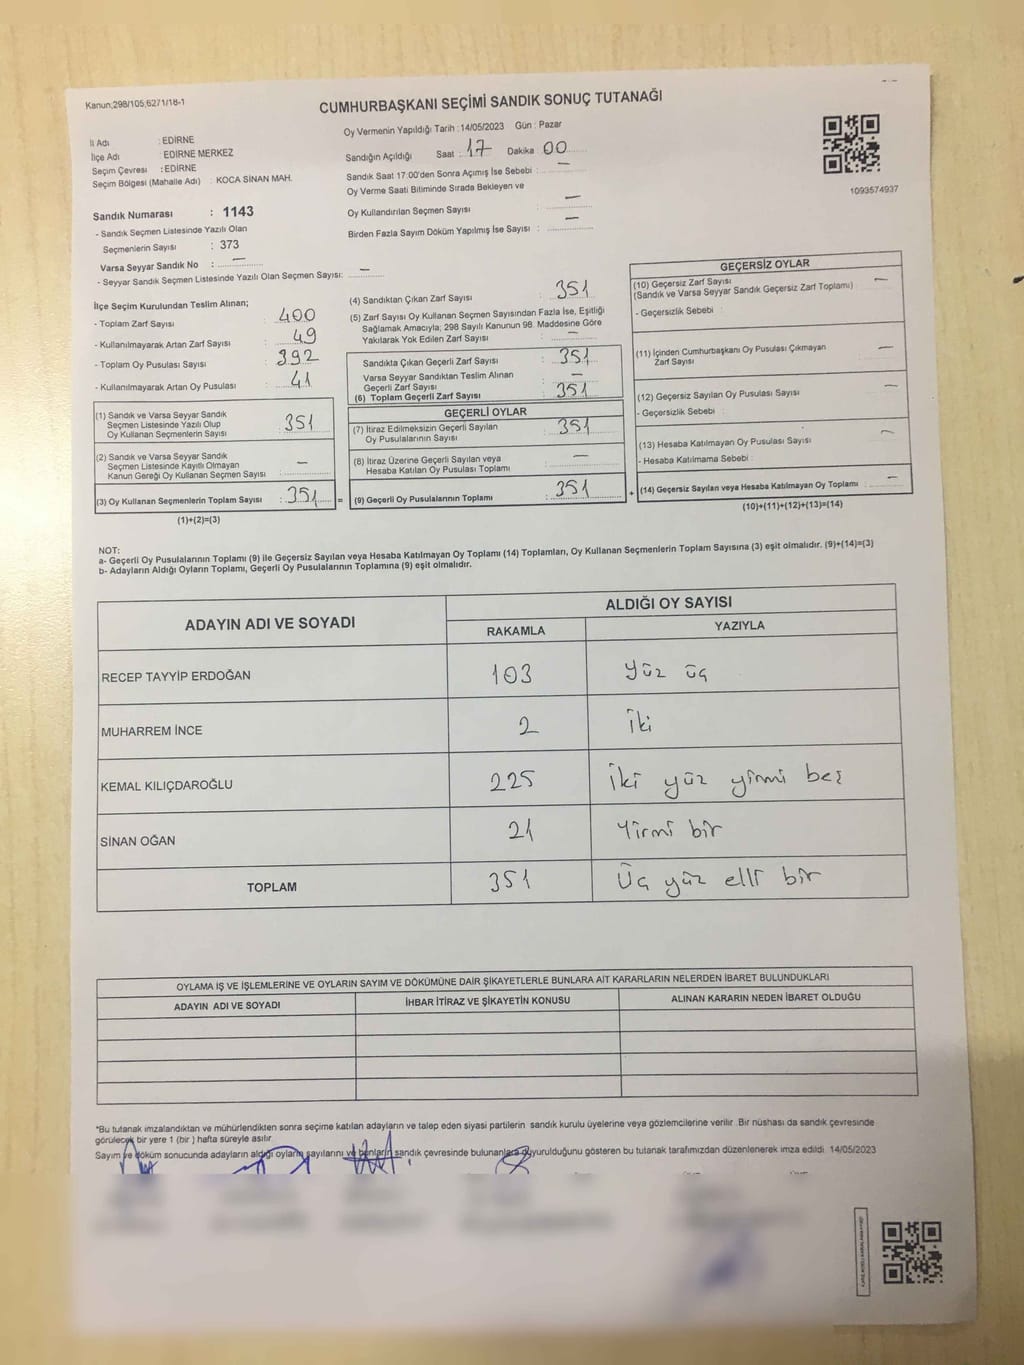 Kanun;298/105,6271/18-1
CUMHURBAŞKANI SEÇİMİ SANDIK SONUÇ TUTANAĞI
İl Adı : EDİRNE
İlçe Adı : EDİRNE MERKEZ
Seçim Çevresi : EDİRNE
Seçim Bölgesi (Mahalle Adı) : KOCA SİNAN MAH.
Oy Vermenin Yapıldığı Tarih : 14/05/2023 Gün : Pazar
Sandığın Açıldığı Saat : 17 Dakika 00
Sandık Saat 17:00'den Sonra Açımış İse Sebebi : —
Oy Verme Saati Bitiminde Sırada Bekleyen ve
Oy Kullandırılan Seçmen Sayısı : —
Birden Fazla Sayım Döküm Yapılmış İse Sayısı : —
1093574937
Sandık Numarası : 1143
- Sandık Seçmen Listesinde Yazılı Olan
Seçmenlerin Sayısı : 373
Varsa Seyyar Sandık No : —
- Seyyar Sandık Seçmen Listesinde Yazılı Olan Seçmen Sayısı: —
İlçe Seçim Kurulundan Teslim Alınan;
- Toplam Zarf Sayısı : 400
- Kullanılmayarak Artan Zarf Sayısı : 49
- Toplam Oy Pusulası Sayısı : 392
- Kullanılmayarak Artan Oy Pusulası : 41
(1) Sandık ve Varsa Seyyar Sandık
Seçmen Listesinde Yazılı Olup
Oy Kullanan Seçmenlerin Sayısı : 351
(2) Sandık ve Varsa Seyyar Sandık
Seçmen Listesinde Kayıtlı Olmayan
Kanun Gereği Oy Kullanan Seçmen Sayısı : —
(3) Oy Kullanan Seçmenlerin Toplam Sayısı : 351 =
(1)+(2)=(3)
(4) Sandıktan Çıkan Zarf Sayısı : 351
(5) Zarf Sayısı Oy Kullanan Seçmen Sayısından Fazla İse, Eşitliği
Sağlamak Amacıyla; 298 Sayılı Kanunun 98. Maddesine Göre
Yakılarak Yok Edilen Zarf Sayısı : —
Sandıkta Çıkan Geçerli Zarf Sayısı : 351
Varsa Seyyar Sandıktan Teslim Alınan
Geçerli Zarf Sayısı : —
(6) Toplam Geçerli Zarf Sayısı : 351
GEÇERLİ OYLAR
(7) İtiraz Edilmeksizin Geçerli Sayılan
Oy Pusulalarının Sayısı : 351
(8) İtiraz Üzerine Geçerli Sayılan veya
Hesaba Katılan Oy Pusulası Toplamı : —
(9) Geçerli Oy Pusulalarının Toplamı : 351 +
GEÇERSİZ OYLAR
(10) Geçersiz Zarf Sayısı —
(Sandık ve Varsa Seyyar Sandık Geçersiz Zarf Toplamı) :
- Geçersizlik Sebebi :
(11) İçinden Cumhurbaşkanı Oy Pusulası Çıkmayan
Zarf Sayısı : —
(12) Geçersiz Sayılan Oy Pusulası Sayısı : —
- Geçersizlik Sebebi :
(13) Hesaba Katılmayan Oy Pusulası Sayısı : —
- Hesaba Katılmama Sebebi :
(14) Geçersiz Sayılan veya Hesaba Katılmayan Oy Toplamı : —
(10)+(11)+(12)+(13)=(14)
NOT:
a- Geçerli Oy Pusulalarının Toplamı (9) ile Geçersiz Sayılan veya Hesaba Katılmayan Oy Toplamı (14) Toplamları, Oy Kullanan Seçmenlerin Toplam Sayısına (3) eşit olmalıdır. (9)+(14)=(3)
b- Adayların Aldığı Oyların Toplamı, Geçerli Oy Pusulalarının Toplamına (9) eşit olmalıdır.
ADAYIN ADI VE SOYADI ALDIĞI OY SAYISI
RAKAMLA YAZIYLA
RECEP TAYYİP ERDOĞAN 103 yüz üç
MUHARREM İNCE 2 iki
KEMAL KILIÇDAROĞLU 225 iki yüz yirmi beş
SİNAN OĞAN 21 Yirmi bir
TOPLAM 351 Üç yüz elli bir
OYLAMA İŞ VE İŞLEMLERİNE VE OYLARIN SAYIM VE DÖKÜMÜNE DAİR ŞİKAYETLERLE BUNLARA AİT KARARLARIN NELERDEN İBARET BULUNDUKLARI
ADAYIN ADI VE SOYADI İHBAR İTİRAZ VE ŞİKAYETİN KONUSU ALINAN KARARIN NEDEN İBARET OLDUĞU
*Bu tutanak imzalandıktan ve mühürlendikten sonra seçime katılan adayların ve talep eden siyasi partilerin sandık kurulu üyelerine veya gözlemcilerine verilir. Bir nüshası da sandık çevresinde
görülecek bir yere 1 (bir) hafta süreyle asılır.
Sayım ve döküm sonucunda adayların aldığı oyların sayılarını ve bunların sandık çevresinde bulunanlara duyurulduğunu gösteren bu tutanak tarafımızdan düzenlenerek imza edildi. 14/05/2023